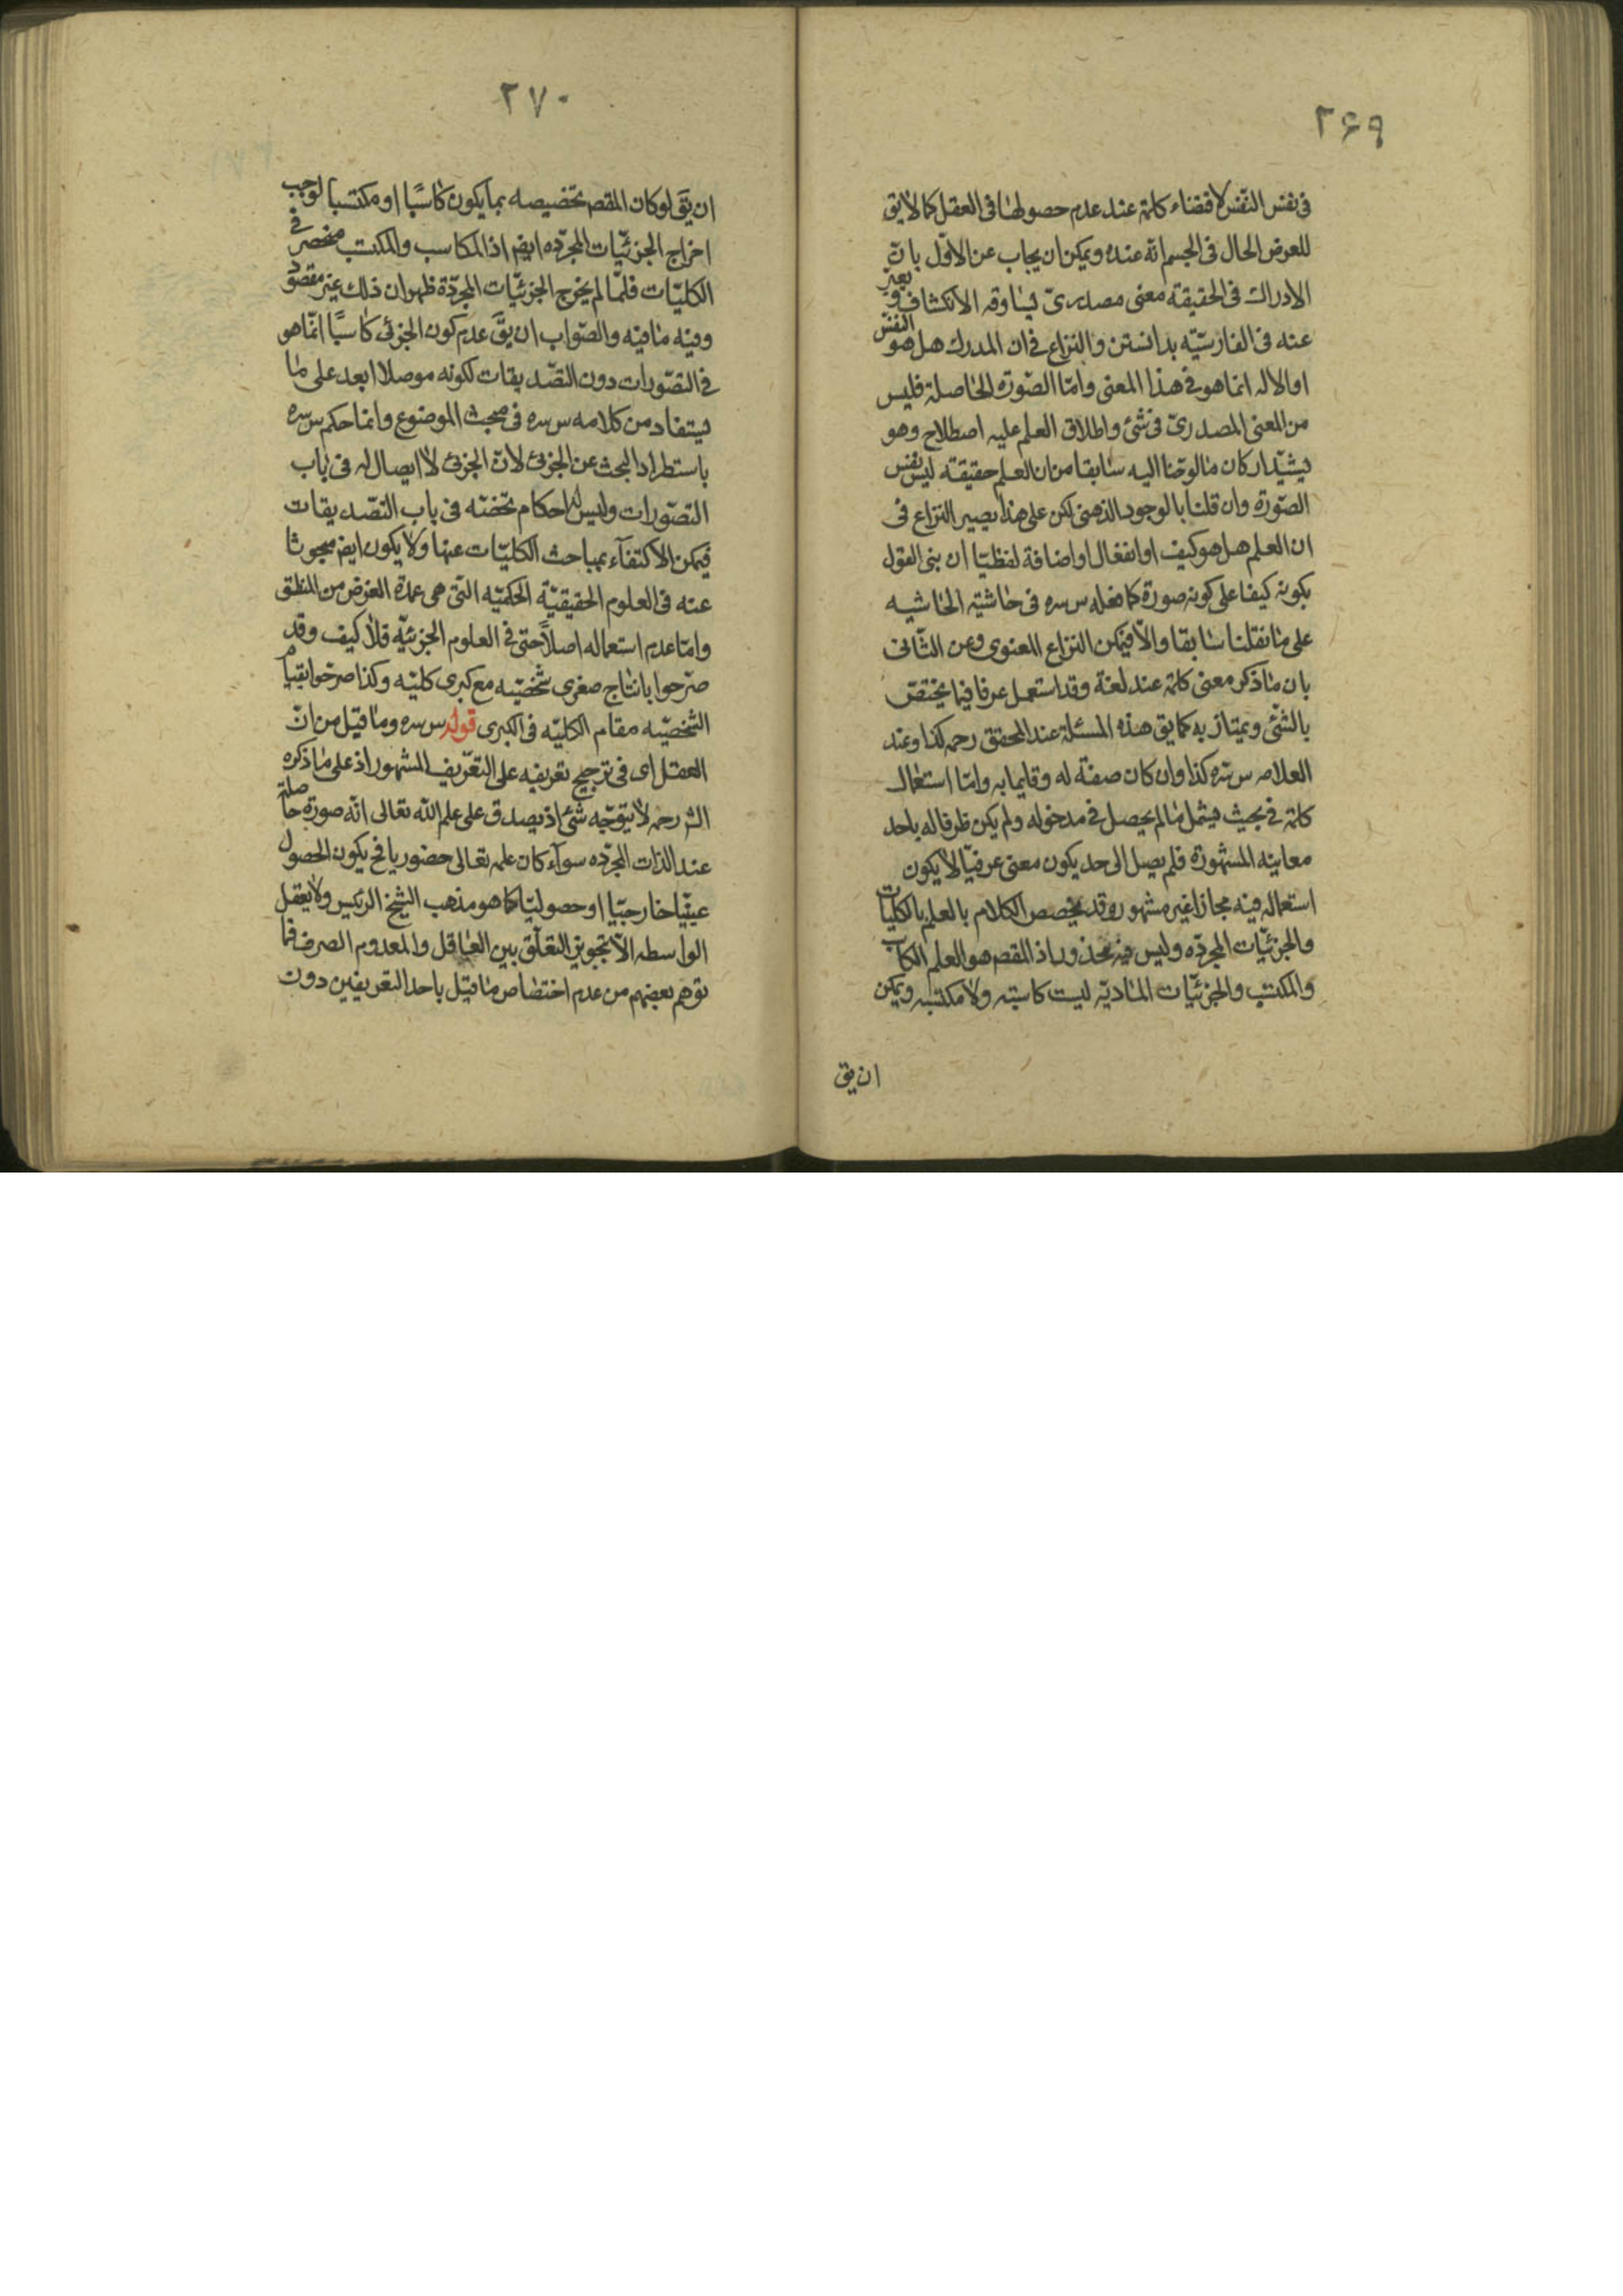 ٢۶٩
فى نفس النّفس لاقتضاء كلمة عند عدم حصولها فى العقل كما لا يق
للعرض الحال فى الجسم انّه عنده ويمكن ان يجاب عن الاوّل بانّ
الادراك فى الحقيقة معنى مصدرىّ يساوقه الانكشاف ويعبّر
عنه فى الفارسيّه بدانستن والنزاع فى ان المدرك هل هو النفس
او الاله انما هو فى هذا المعنى وامّا الصّورة الحاصلة فليس
من المعنى المصدرىّ فى شئ واطلاق العلم عليه اصطلاح وهو
يشيّد اركان ما لوّحنا اليه سابقا من ان العلم حقيقة ليس نفس
الصّورة وان قلنا بالوجود الذهنى لكن على هذا يصير النزاع فى
ان العلم هل هو كيف او انفعال او اضافة لفظيّا ان بنى القول
بكونه كيفا على كونه صورة كما فعله س سره فى حاشية الحاشيه
على ما نقلنا سابقا والّا فيمكن النزاع المعنوى وعن الثّانى
بان ما ذكر معنى كلمة عند لغة وقد استعمل عرفا فيما يختصّ
بالشّئ ويمتاز به كما يق هذه المسئلة عند المحقق رحمه كذا وعند
العلامه س سره كذا وان كان صفة له وقايما به وامّا استعمال
كلمة فى بحيث يشمل ما لم يحصل فى مدخوله ولم يكن ظرفا له باحد
معانيه المشهورة فلم يصل الى حد يكون معنى عرفيّا لا يكون
استعماله فيه مجازا غير مشهور وقد يخصص الكلام بالعلم بالكليات
والجزئيّات المجردّه وليس فيه محذور اذ المقصم هو العلم الكاسب
والمكتسب والجزئيّات الماديّه ليست كاسبته ولا مكتسبه ويمكن
ان يق
٢٧٠
ان يقَ لو كان المقصم تخصيصه بما يكون كاسبًا او مكتسبا لوجب
اخراج الجزئيّات المجردّه ايضم اذ المكاسب والمكتسب منحصر فى
الكليّات فلمّا لم يخرج الجزئيّات المجردّة ظهر ان ذلك غير مقصود
وفيه ما فيه والصّواب ان يقَ عدم كون الجزئى كاسبًا انّما هو
فى التصّورات دون التصّديقات لكونه موصلا ابعد على ما
يستفاد من كلامه س سره فى مبحث الموضوع وانما حكم س سره
باستطراد البحث عن الجزئى لانّ الجزئى لا ايصال له فى باب
التصّورات وليس له احكام تخصّه فى باب التصّديقات
فيمكن الاكتفاء بمباحث الكليّات عنها ولا يكون ايضم مبحوثا
عنه فى العلوم الحقيقيّة الحكميّه التى هى عمدة الغرض من المنطق
وامّا عدم استعماله اصلًا حتى فى العلوم الجزئيّه فلا كيف وقد
صرّحوا بانتاج صغرى شخصيّه مع كبرى كليّه وكذا صرّحوا بقيام
الشّخصيّه مقام الكليّه فى الكبرى قوله س سره وما قيل من انّ
العقل اى فى ترجيح تعريفه على التعريف المشهور اذ على ما ذكره
الشم رحمه لا يتوجّه شئ اذ يصدق على علم الله تعالى انّه صورة حاصلة
عند الذات المجردّه سوآء كان علمه تعالى حضوريا فح يكون الحصول
عينيّا خارجيّا او حصوليّا كما هو مذهب الشيخ الرئيس ولا يعقل
الواسطه الّا تجويز التعلّق بين العاقل والمعدوم الصرف فما
توهم بعضهم من عدم اختصاص ما قيل باحد التعريفين دون